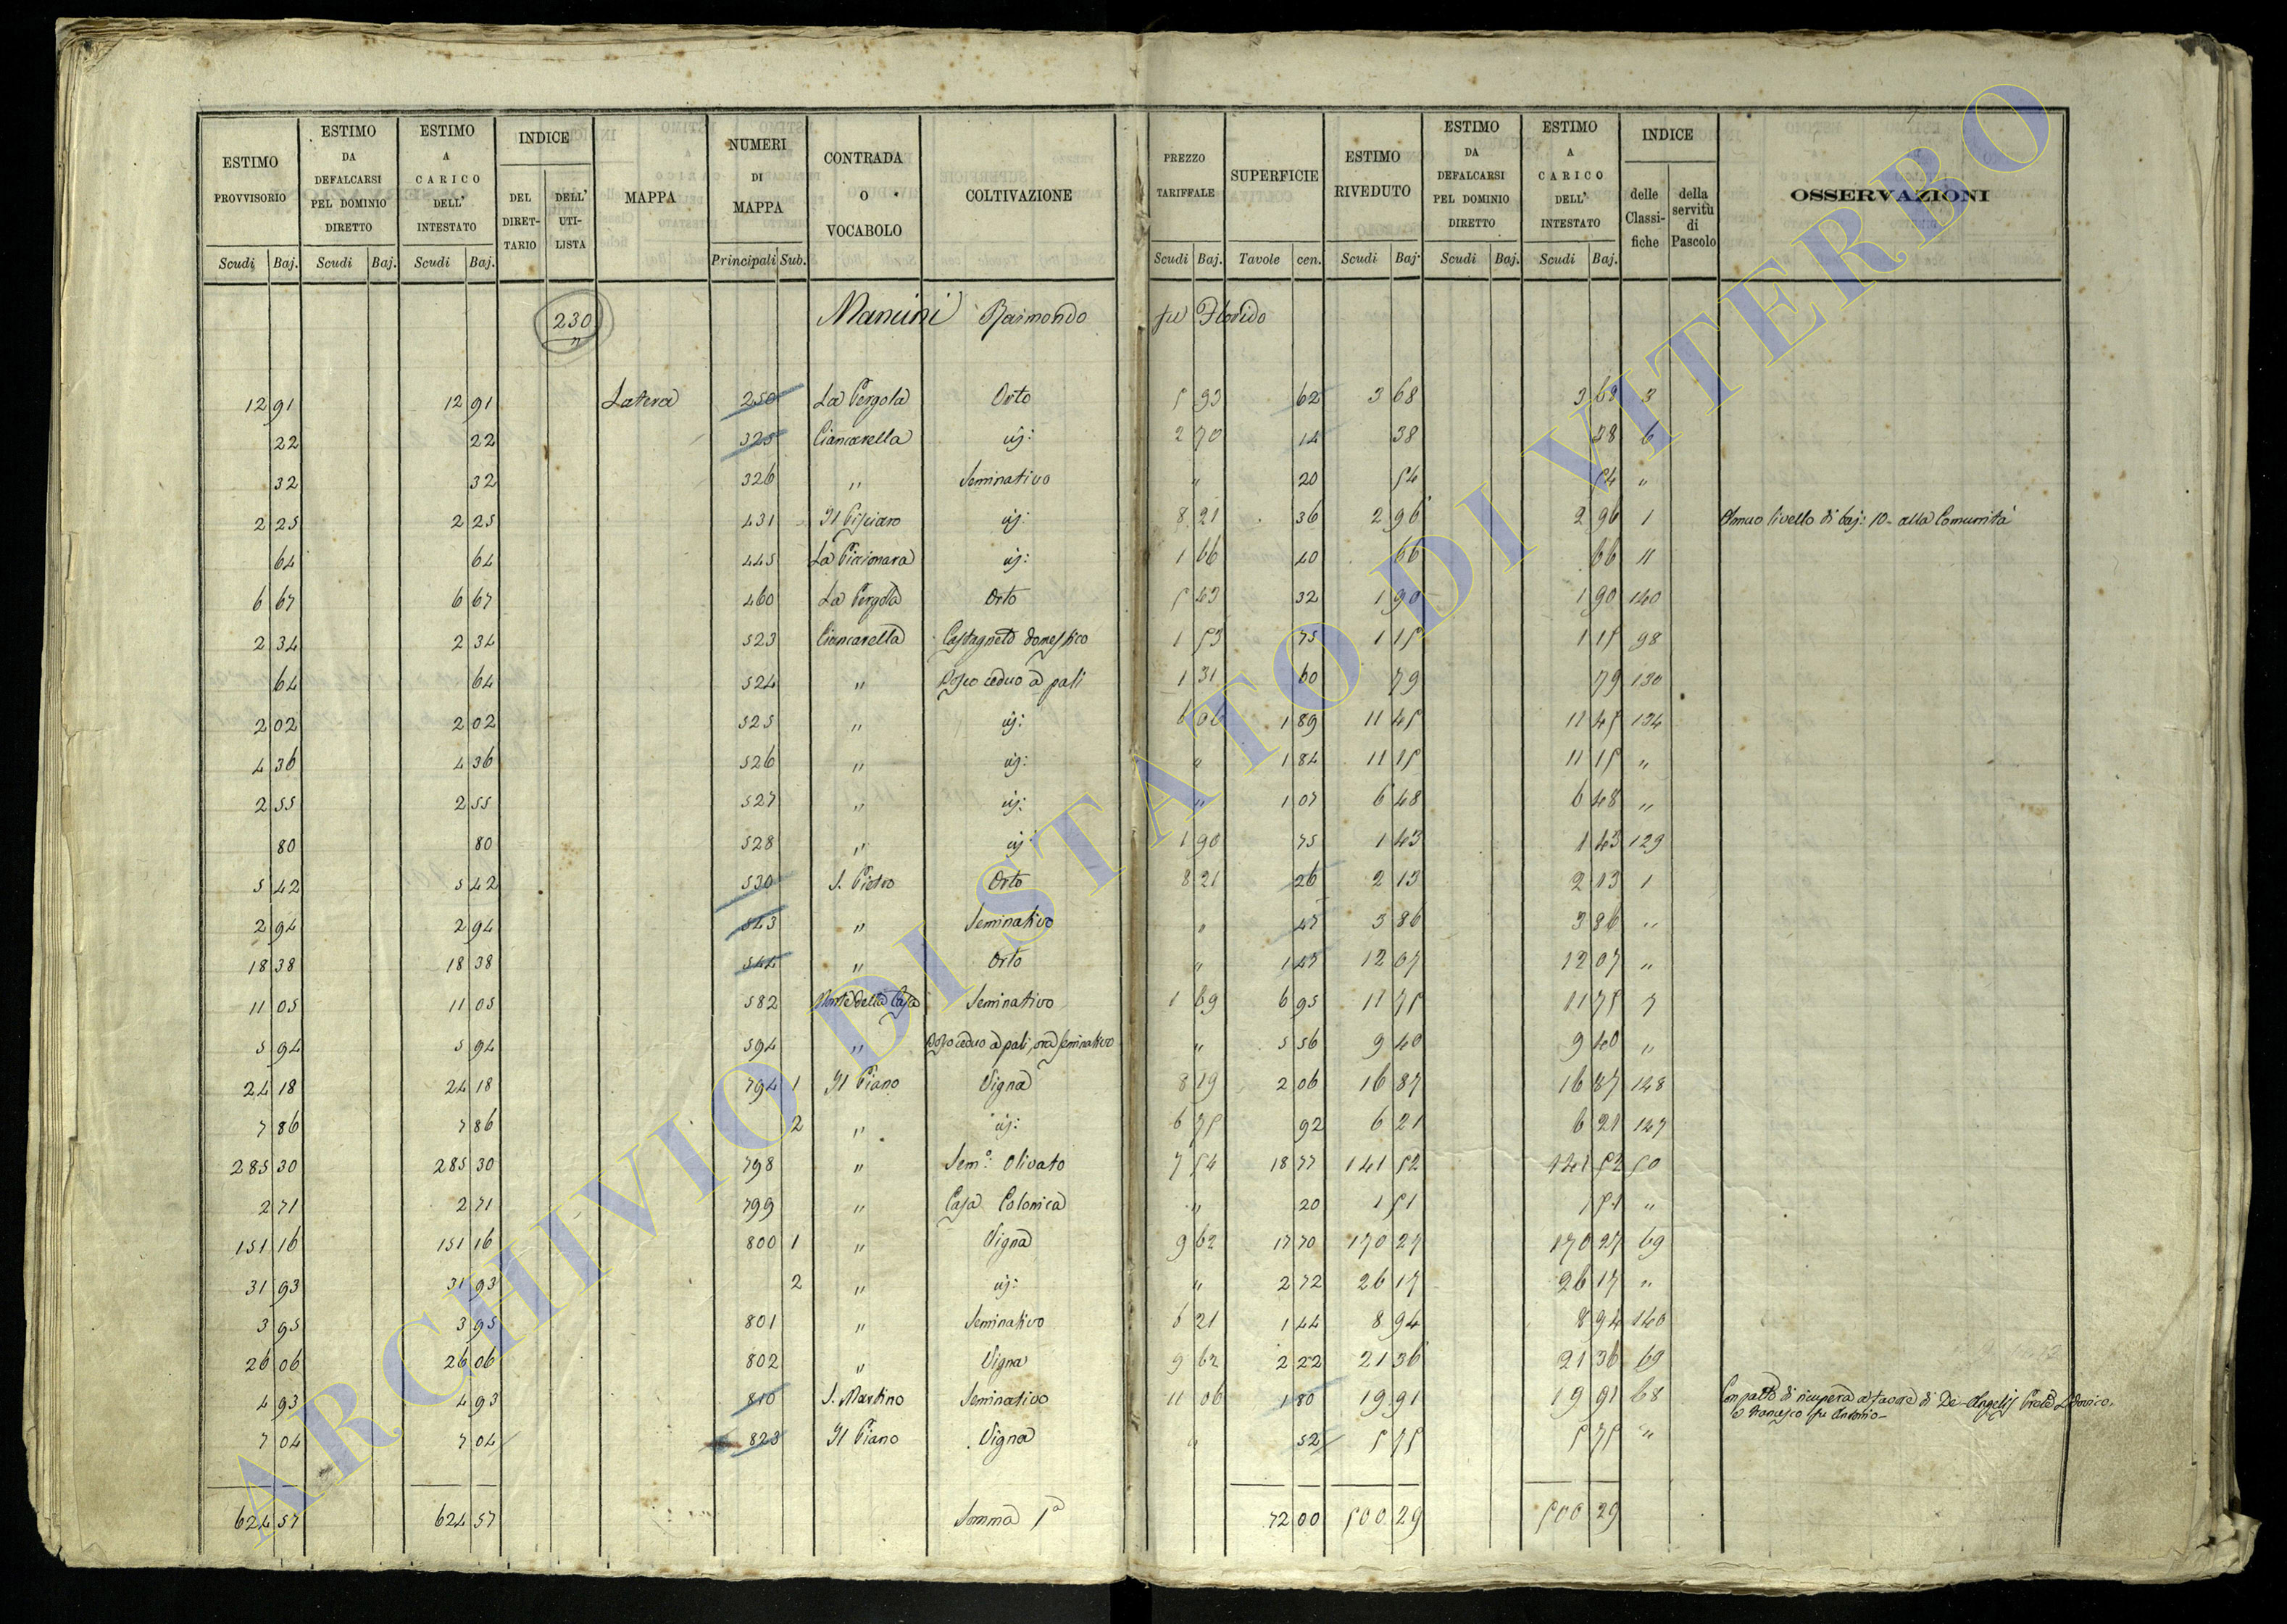 ESTIMO PROVVISORIO | ESTIMO DA DEFALCARSI PEL DOMINIO DIRETTO | ESTIMO A CARICO DELL' INTESTATO | INDICE DEL DIRETTARIO | DELL' UTILISTA | MAPPA | NUMERI DI MAPPA | CONTRADA O VOCABOLO | COLTIVAZIONE | PREZZO TARIFFALE | SUPERFICIE | ESTIMO RIVEDUTO | ESTIMO DA DEFALCARSI PEL DOMINIO DIRETTO | ESTIMO A CARICO DELL' INTESTATO | INDICE delle Classifiche | della servitù di Pascolo | OSSERVAZIONI
Scudi Baj. | Scudi Baj. | Scudi Baj. | Principali Sub. | Scudi Baj. | Tavole cen. | Scudi Baj. | Scudi Baj. | Scudi Baj.
230 " Mancini Raimondo fu Florido
12 91 | 12 91 | Latera | 250 | La Pergola | Orto | 5 93 | 62 | 3 68 | 3 68 | 3
22 | 22 | 325 | Ciancarella | id: | 2 70 | 14 | 38 | 38 | 6
32 | 32 | 326 | " | Seminativo | " | 20 | 54 | 54 | "
2 25 | 2 25 | 431 | Il | id: | 8 21 | 36 | 2 96 | 2 96 | 1 | Annuo livello di baj: 10 - alla Comunità
64 | 64 | 445 | La Piccionara | id: | 1 66 | 40 | 66 | 66 | 11
6 67 | 6 67 | 460 | La Pergola | Orto | 5 43 | 32 | 1 90 | 1 90 | 140
2 34 | 2 34 | 523 | Ciancarella | Castagneto domestico | 1 53 | 75 | 1 15 | 1 15 | 98
64 | 64 | 524 | " | Bosco ceduo a pali | 1 31 | 60 | 79 | 79 | 130
2 02 | 2 02 | 525 | " | id: | 6 06 | 1 89 | 11 45 | 11 45 | 134
4 36 | 4 36 | 526 | " | id: | " | 1 84 | 11 15 | 11 15 | "
2 55 | 2 55 | 527 | " | id: | " | 1 07 | 6 48 | 6 48 | "
80 | 80 | 528 | " | id: | 1 90 | 75 | 1 43 | 1 43 | 129
5 42 | 5 42 | 530 | S. Pietro | Orto | 8 21 | 26 | 2 13 | 2 13 | 1
2 94 | 2 94 | 543 | " | Seminativo | " | 47 | 3 86 | 3 86 | "
18 38 | 18 38 | 544 | " | Orto | " | 1 47 | 12 07 | 12 07 | "
11 05 | 11 05 | 582 | Monte della Casa | Seminativo | 1 69 | 6 95 | 11 75 | 11 75 | 7
5 94 | 5 94 | 594 | " | Bosco ceduo a pali, ora Seminativo | " | 5 56 | 9 40 | 9 40 | "
24 18 | 24 18 | 794 1 | Il Piano | Vigna | 8 19 | 2 06 | 16 87 | 16 87 | 148
7 86 | 7 86 | 2 | " | id: | 6 75 | 92 | 6 21 | 6 21 | 147
285 30 | 285 30 | 798 | " | Sem.º Olivato | 7 54 | 18 77 | 141 52 | 141 52 | 50
2 71 | 2 71 | 799 | " | Casa Colonica | " | 20 | 1 51 | 1 51 | "
151 16 | 151 16 | 800 1 | " | Vigna | 9 62 | 17 70 | 170 27 | 170 27 | 69
31 93 | 31 93 | 2 | " | id: | " | 2 72 | 26 17 | 26 17 | "
3 95 | 3 95 | 801 | " | Seminativo | 6 21 | 1 44 | 8 94 | 8 94 | 140
26 06 | 26 06 | 802 | " | Vigna | 9 62 | 2 22 | 21 36 | 21 36 | 69
4 93 | 4 93 | 810 | S. Martino | Seminativo | 11 06 | 1 80 | 19 91 | 19 91 | 68 | Con patto di ricupera a favore di De-Angelis
e Francesco fu Antonio -
7 04 | 7 04 | 823 | Il Piano | Vigna | " | 52 | 5 75 | 5 75 | "
624 57 | 624 57 | Somma 1ª | 72 00 | 500 29 | 500 29
ARCHIVIO DI STATO DI VITERBO